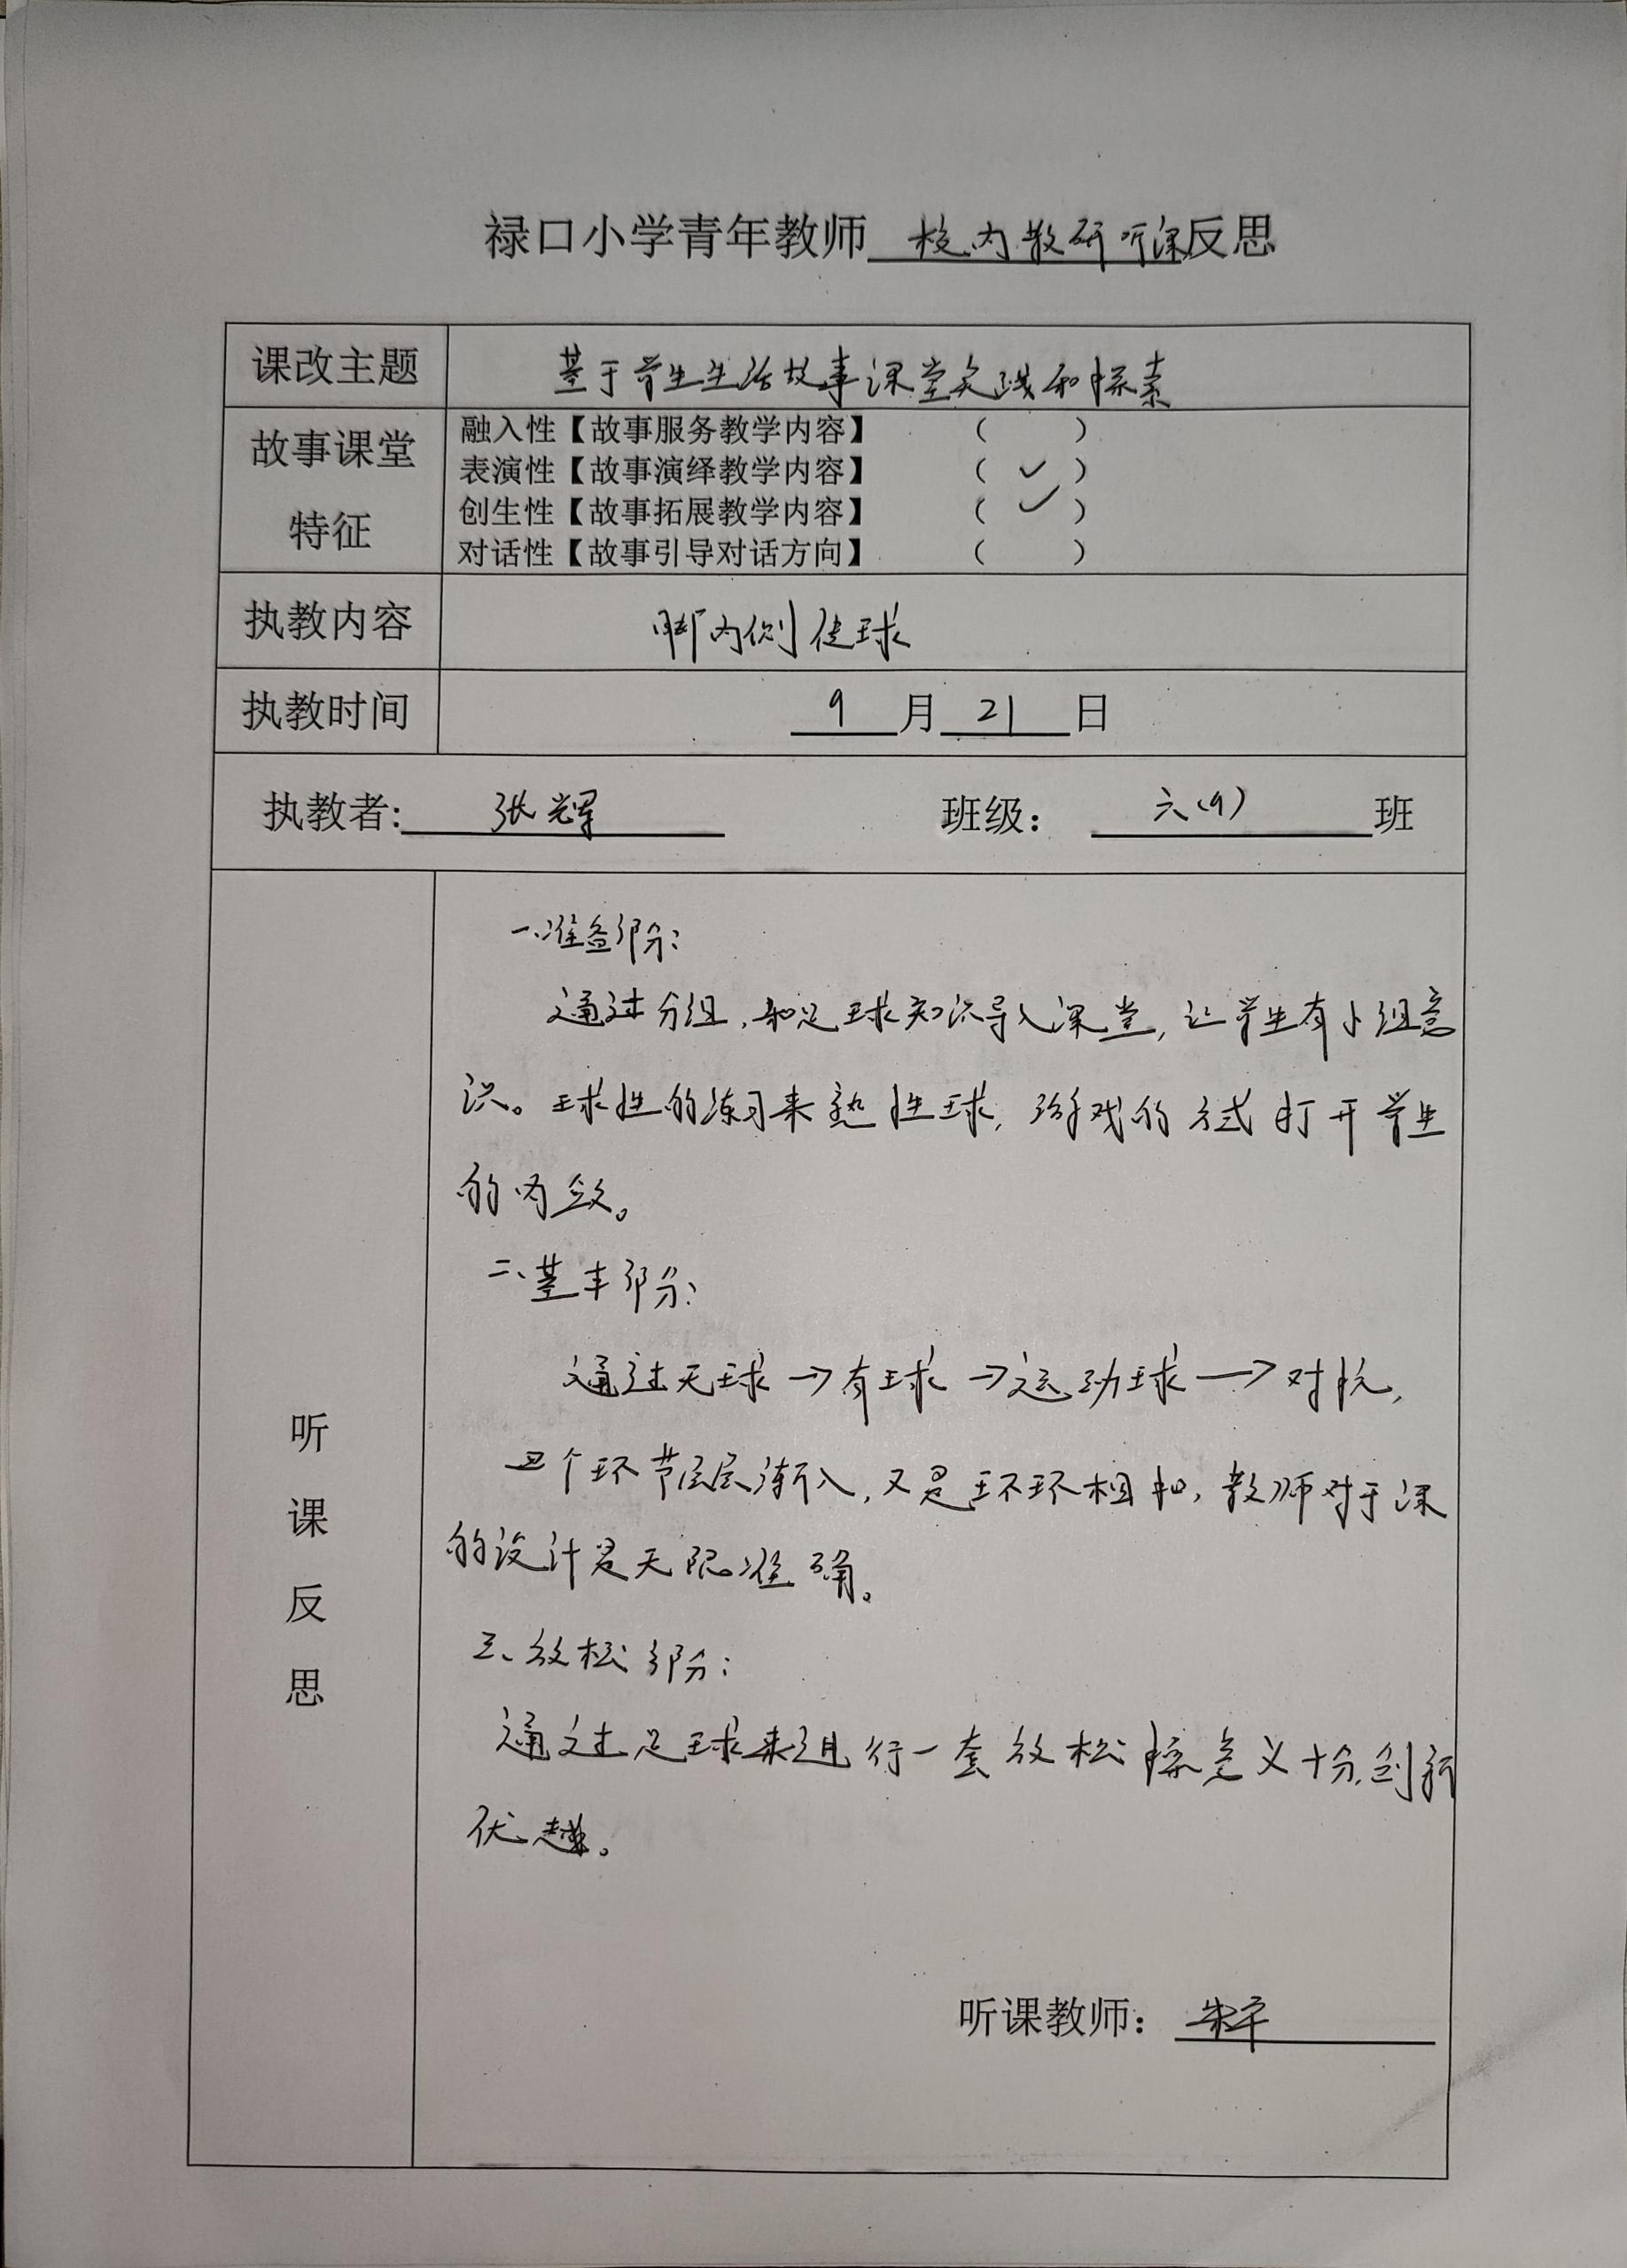 禄口小学青年教师 校内教研听课反思
课改主题 基于学生生活故事课堂实践和探索
故事课堂特征
融入性【故事服务教学内容】 （ ）
表演性【故事演绎教学内容】 （ ✓ ）
创生性【故事拓展教学内容】 （ ✓ ）
对话性【故事引导对话方向】 （ ）
执教内容 脚内侧传球
执教时间 9 月 21 日
执教者: 张辉 班级： 六(9) 班
听课反思
一、准备部分：
通过分组，和足球知识导入课堂，让学生有小组意
识。球性的练习来熟悉性球，游戏的方式打开学生
的内敛。
二、基本部分：
通过无球→有球→运动球→对抗，
四个环节层层渐入，又是环环相扣，教师对于课
的设计是无限准确。
三、放松部分：
通过足球来进行一套放松操意义十分创新
优越。
听课教师：